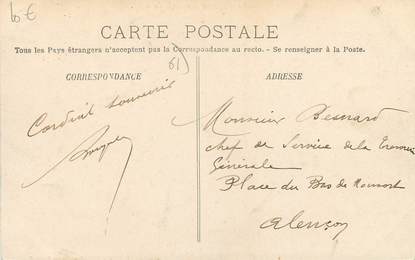 10 €
CARTE POSTALE
Tous les Pays étrangers n'acceptent pas la Correspondance au recto. — Se renseigner à la Poste.
61)
CORRESPONDANCE
Cordial souvenir
ADRESSE
Monsieur Besnard
Chef de Service de la
Générale
Place du Bas de
Alençon